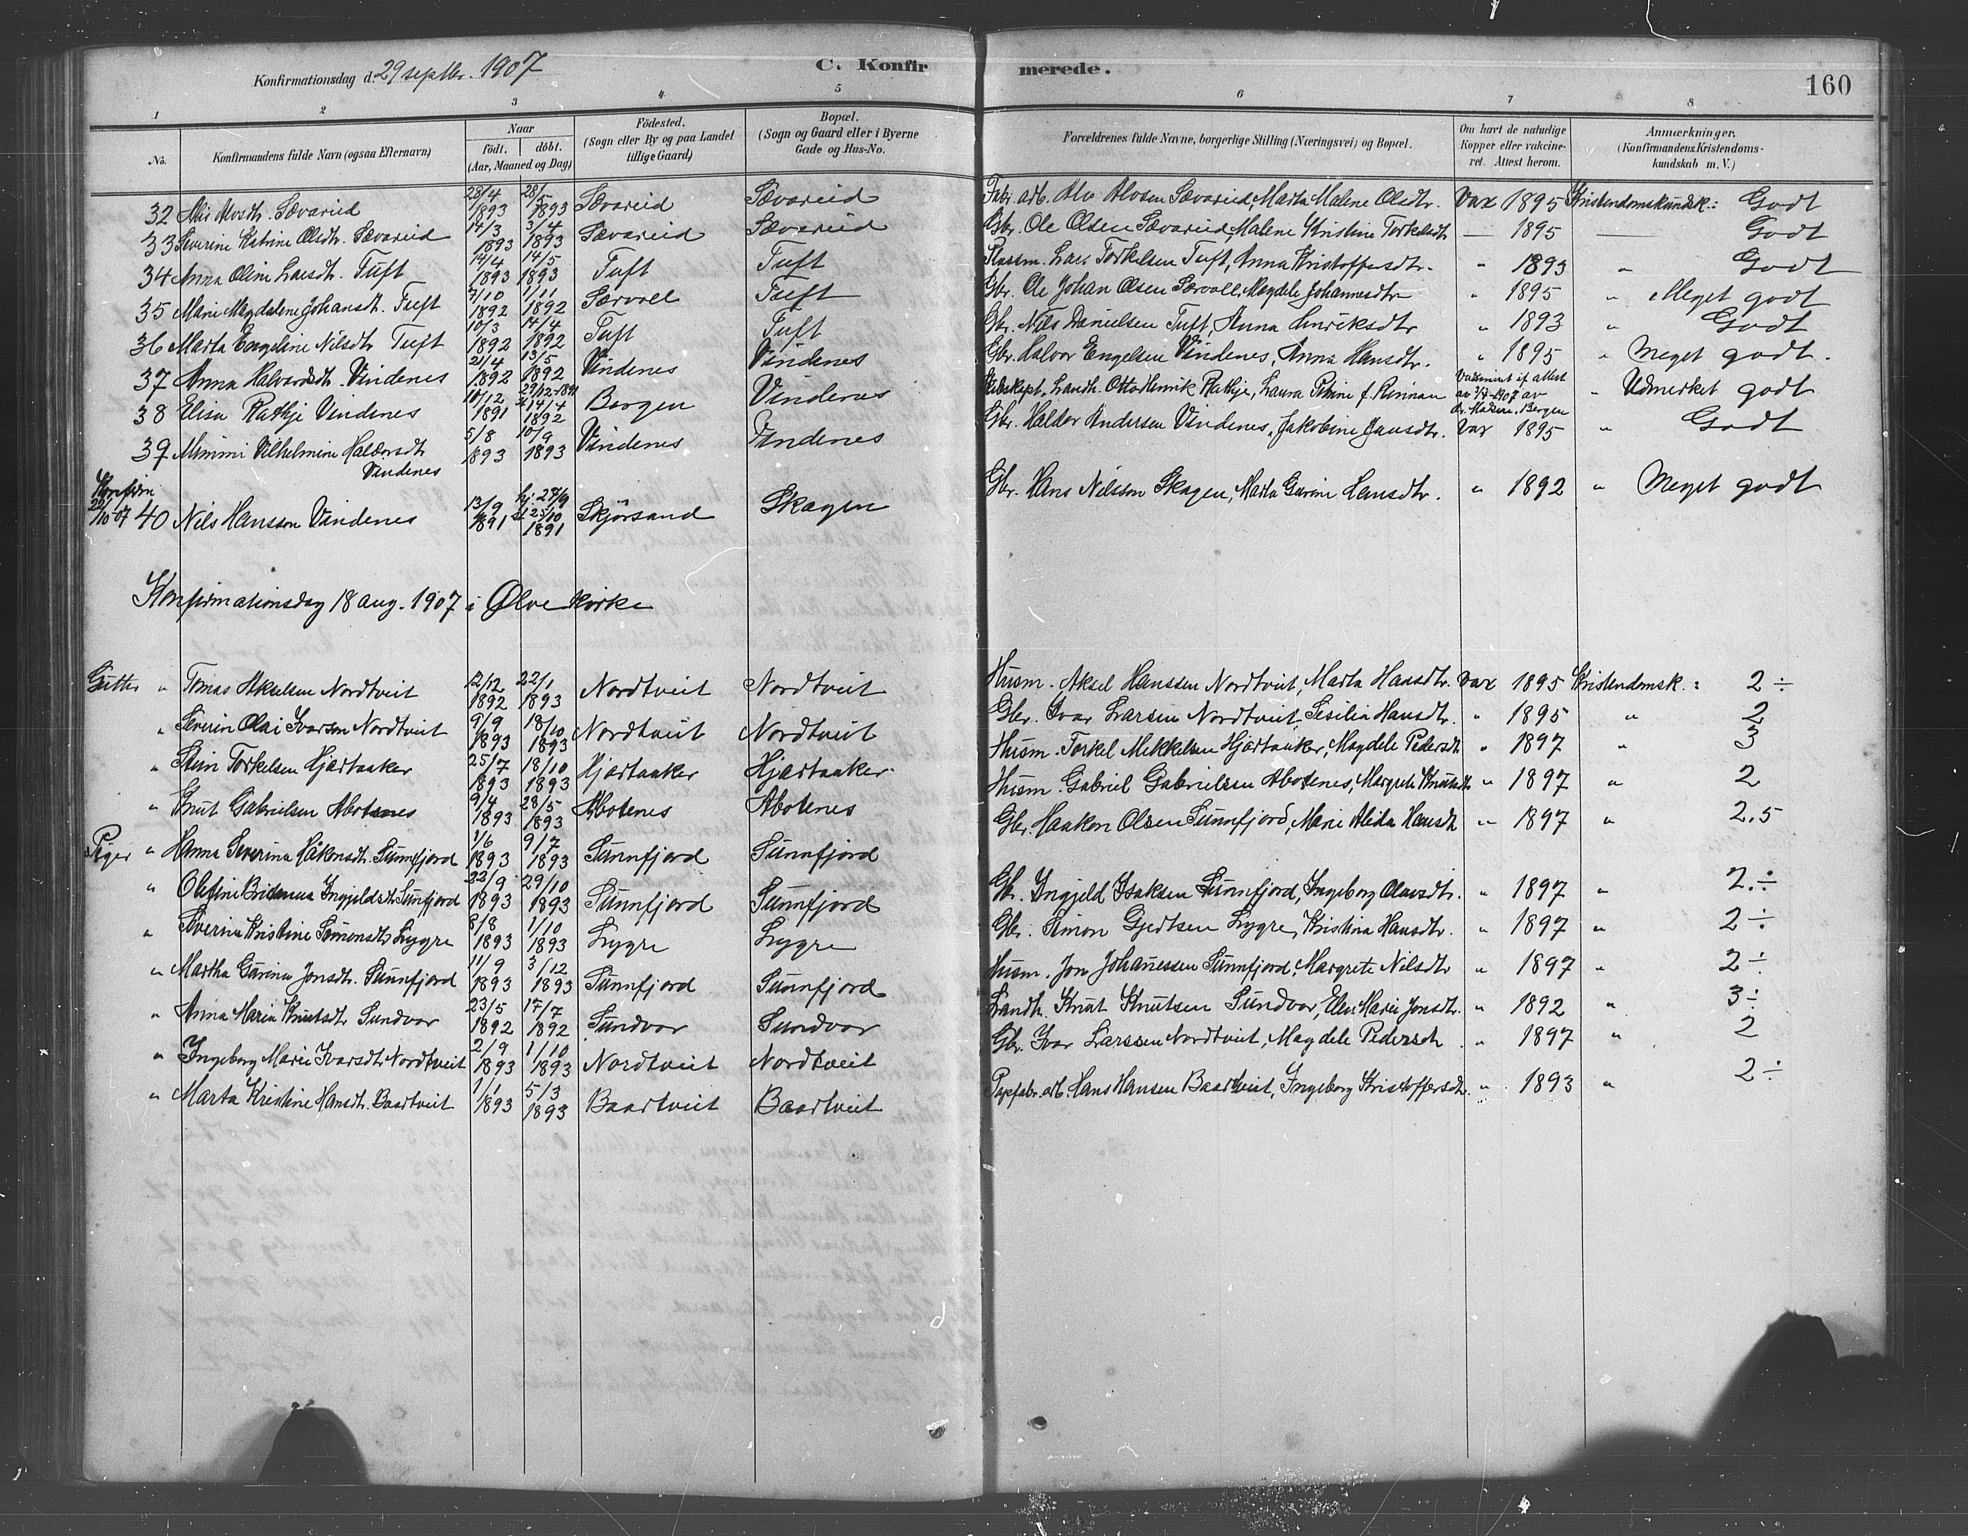 Konfirmationsdag d. 29 septbr. 1907
C. Konfirmerede.
160
1 2 3 4 5 6 7 8
No.
Konfirmandens fulde Navn (ogsaa Efternavn)
Naar
födt. döbt.
(Aar, Maaned og Dag)
Födested.
(Sogn eller By og paa Landet
tillige Gaard)
Bopæl.
(Sogn og Gaard eller i Byerne
Gade og Hus-No.
Forældrenes fulde Navne, borgerlige Stilling (Næringsvei) og Bopæl.
Om havt de naturlige
Kopper eller vakcine-
ret. Attest herom.
Anmærkninger.
(Konfirmandens Kristendoms-
kundskab m. V.)
32 Alvsdtr. Sævareid 28/4 1893 28/5 1893 Sævareid Sævareid Fabr. arb. Alv Alvsen Sævareid, Marta Malene Olsdtr. Vax 1895 Kristendomskundsk.: Godt
33 Severine Katrine Olsdtr. Sævareid 14/3 1893 3/4 1893 Sævareid Sævareid Gbr. Ole Olsen Sævareid, Malene Kristine Torkelsdtr — 1895 — Godt
34 Anna Oline Larsdtr. Tuft 14/4 1893 14/5 1893 Tuft Tuft Plassm. Lars Torkelsen Tuft, Anna Kristoffersdtr. " 1893 " Godt
35 Marie Magdalene Johansdt. Tuft 7/10 1892 1/11 1892 Særvol Tuft Gbr. Ole Johan Olsen Særvoll, Magdele Johannesdtr " 1895 " Meget godt
36 Marta Engeline Nilsdtr Tuft 10/3 1892 14/4 1892 Tuft Tuft Gbr. Nils Danielsen Tuft, Anna Henriksdtr " 1893 " Godt
37 Anna Halvardsdtr. Vindenes 21/4 1892 13/5 1892 Vindenes Vindenes Gbr. Halvor Engelsen Vindenes, Anna Hansdtr. " 1895 " Meget godt.
38 Elisa Rathje Vindenes 10/12 1891 29/12-1891 st 14/4 1892 Bergen Vindenes Landh. Otto Henrik Rathje, Laura Petrine f. Rinnan Vaksineret if attest av 3/4-1907 av dr. Madsen, Bergen " Udmerket godt
39 Mimmi Vilhelmine Haldorsdtr Vindenes 5/8 1893 10/9 1893 Vindenes Vindenes Gbr. Haldor Andersen Vindenes, Jakobine Jansdtr. Vax 1895 " Godt
Konfirm
22/10-07 40 Nils Hansson Vindenes 13/9 1891 hj. 27/9 st 25/10 1891 Skjørsand Skagen Gbr. Hans Nilsson Skagen, Marta Gurine Hansdtr. " 1892 " Meget godt
Konfirmationsdag 18 aug. 1907 i Ølve kirke
Gutter " Tomas Akselsen Nordtveit 12/12 1892 22/1 1893 Nordtveit Nordtveit Husm. Aksel Hanssen Nordtveit, Marta Hansdtr. Vax 1895 Kristendomsk.: 2÷
" Severin Olai Ivarsen Nordtveit 9/9 1893 18/10 1893 Nordtveit Nordtveit Gbr. Ivar Larsen Nordtveit, Sesilia Hansdtr. " 1895 " 2
" Stein Torkelsen Hjartaaker 25/7 1893 18/10 1893 Hjartaaker Hjartaaker Husm. Torkel Mekkelsen Hjartaaker, Magdele Pedersdt " 1897 " 3
" Knut Gabrielsen Abotenes 9/4 1893 28/5 1893 Abotenes Abotenes Husm. Gabriel Gabrielsen Abotenes, Margrete Knutsdtr " 1897 " 2
Piger " Hanna Severina Håkonsdtr. Sunnfjord 1/6 1893 9/7 1893 Sunnfjord Sunnfjord Gbr. Haakon Olsen Sunnfjord, Marie Alida Hansdt " 1897 " 2,5
" Olefine Ingjeldsdt Sunnfjord 22/9 1893 29/10 1893 Sunnfjord Sunnfjord Gbr. Ingjeld Isaksen Sunnfjord, Ingeborg Olavsdtr. " 1897 " 2.÷
" Severina Kristine Simonsdtr Lygre 8/8 1893 1/10 1893 Lygre Lygre Gbr. Simon Gjertsen Lygre, Kristina Hansdtr. " 1897 " 2÷
" Martha Gurina Jonsdtr. Sunnfjord 11/9 1893 3/12 1893 Sunnfjord Sunnfjord Husm. Jon Johanessen Sunnfjord, Margrete Nilsdtr " 1897 " 2÷
" Anna Maria Knutsdtr Sundvor 23/5 1892 17/7 1892 Sundvor Sundvor Landh. Knut Knutsen Sundvor, Elen Marie Jonsdtr. " 1892 " 3÷
" Ingeborg Marie Ivarsdtr Nordtveit 2/9 1893 1/10 1893 Nordtveit Nordtveit Gbr. Ivar Larssen Nordtveit, Magdele Pedersdt " 1897 " 2
" Marta Kristine Hansdtr. Baartveit 1/1 1893 5/3 1893 Baartveit Baartveit Papfabr. arb. Hans Hansen Baartveit, Ingeborg Kristoffersdtr. " 1893 " 2÷